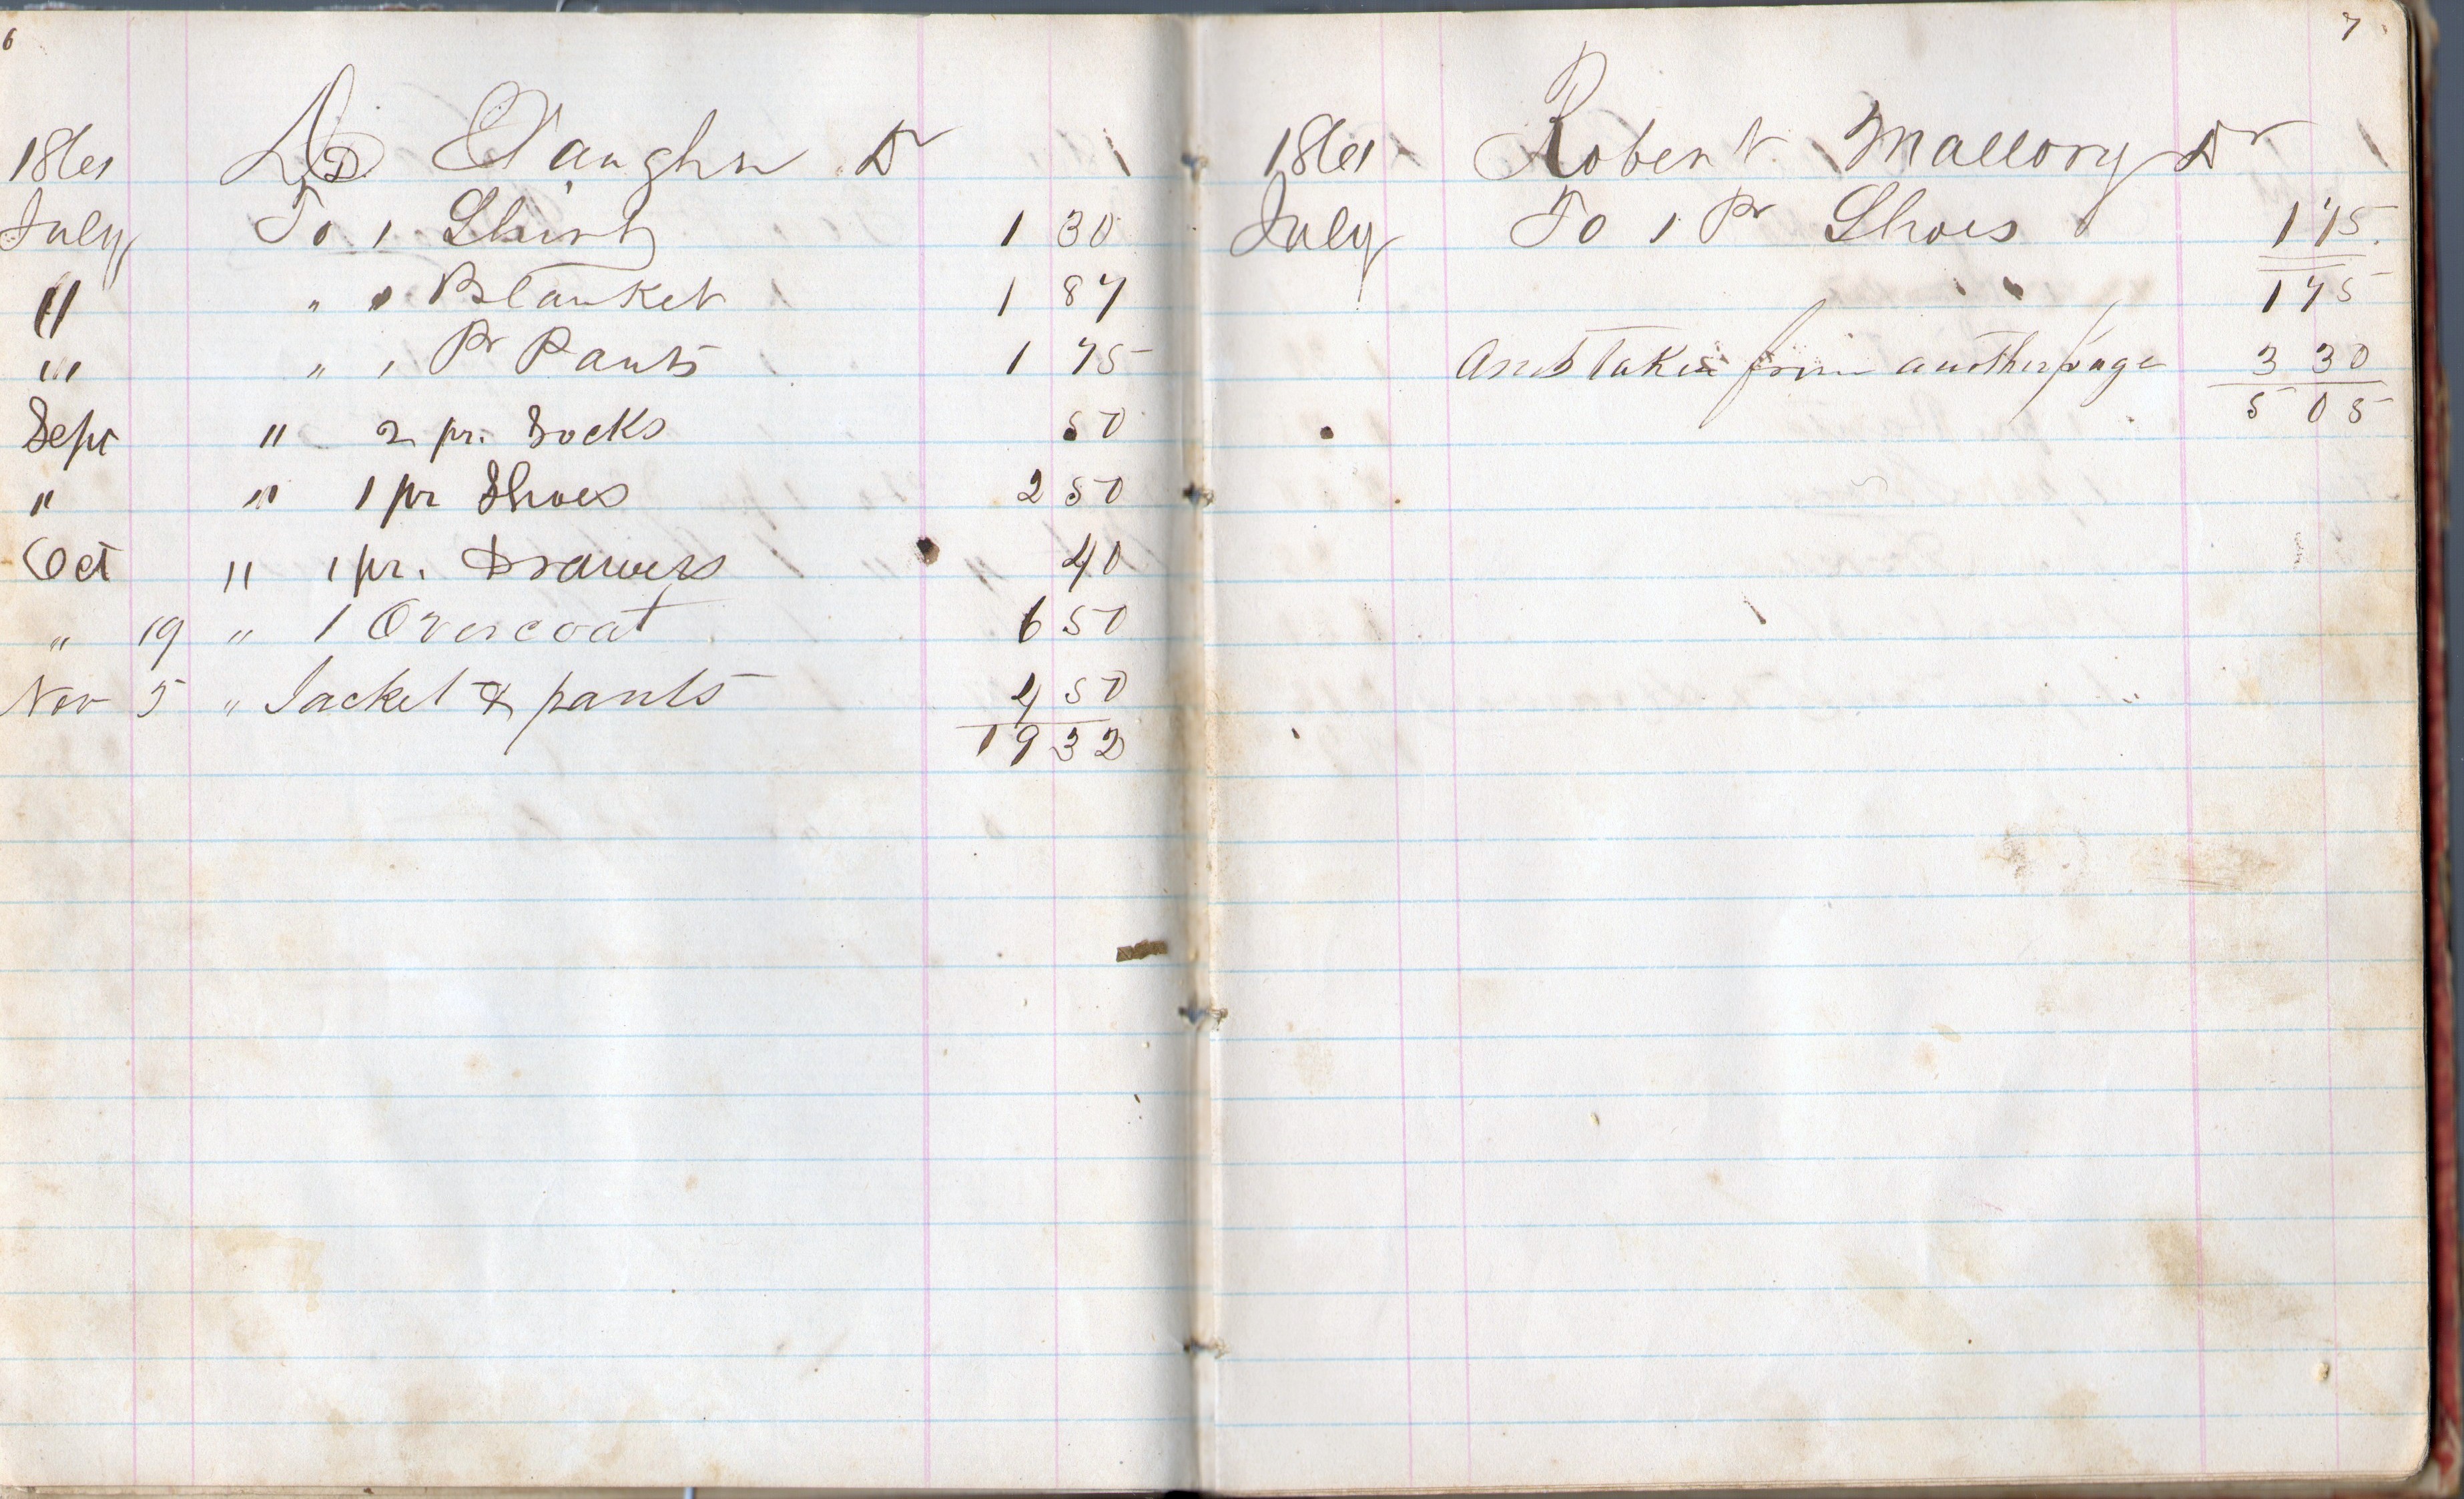 6
1861 Vaughn Dr
July To 1 Shirt 1 30
" " 1 Blanket 1 87
" " 1 Pr Pants 1 75
Sept " 2 pr. Socks 50
" " 1 pr Shoes 2 50
Oct " 1 pr. Drawers 40
" 19 " 1 Overcoat 6 50
Nov 5 " Jacket & pants 4 50
19 32
7
1861 Robert Mallory Dr
July To 1 Pr Shoes 1 75
1 75
Amt taken from another page 3 30
5 05